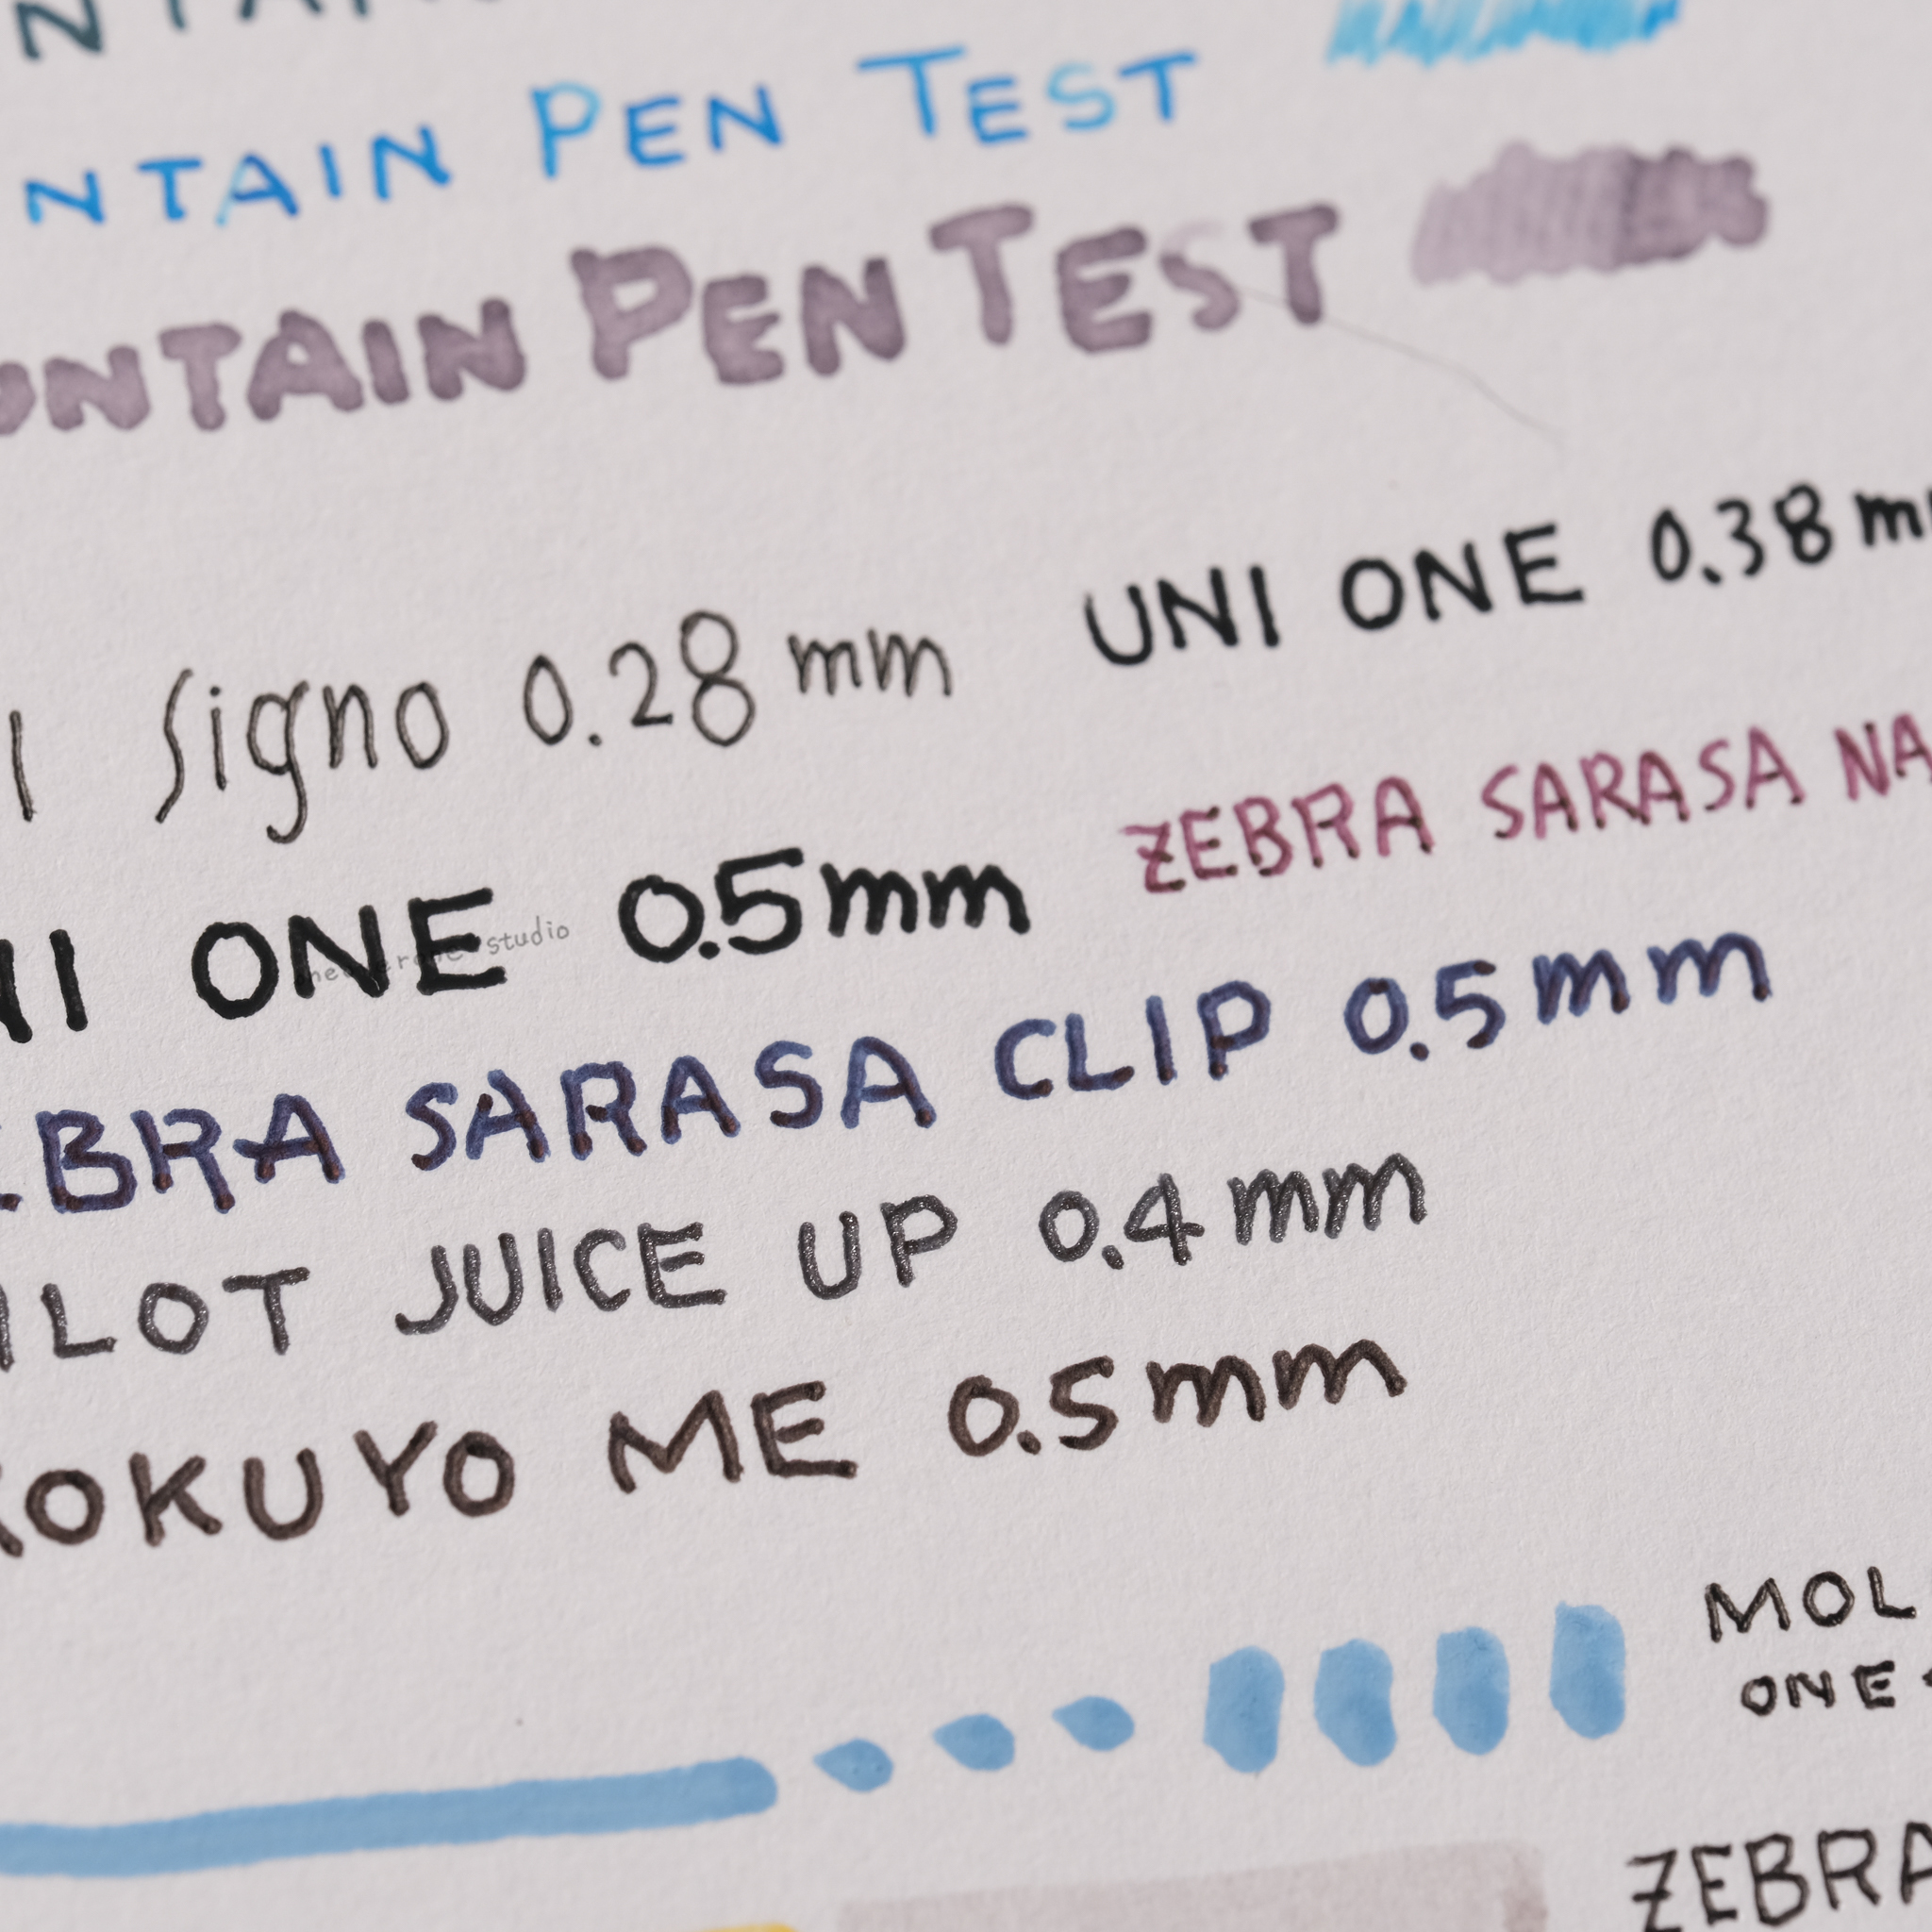 NTAIN PEN TEST
UNTAIN PEN TEST
UNI ONE 0.38 m
I Signo 0.28 mm
ZEBRA SARASA NA
NI ONE 0.5mm
studio
EBRA SARASA CLIP 0.5mm
ILOT JUICE UP 0.4mm
KOKUYO ME 0.5mm
MOL
ONE
ZEBRA